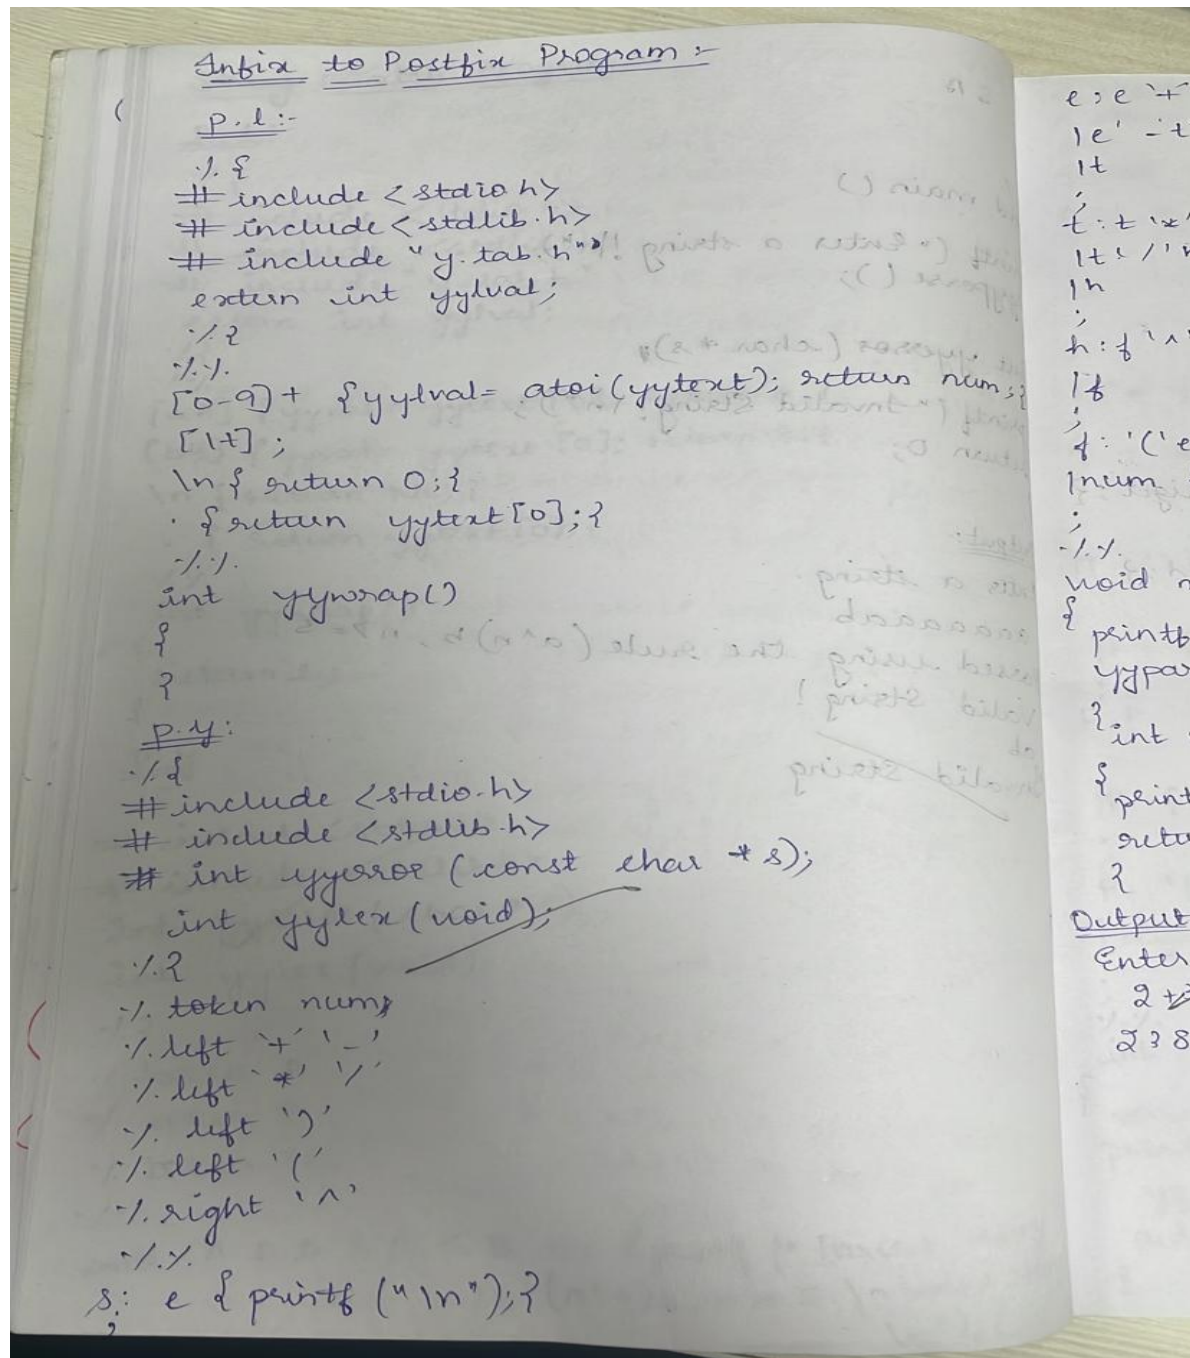 Infix to Postfix Program :-
p.l :-
%{
# include <stdio.h>
# include <stdlib.h>
# include "y.tab.h"
extern int yylval;
%}
%%
[0-9]+ {yylval= atoi(yytext); return num;}
[\t] ;
\n { return 0;}
. {return yytext[0];}
%%
int yywrap()
{
}
p.y:
%{
# include <stdio.h>
# include <stdlib.h>
# int yyerror (const char * s);
int yylex (void);
%}
% token num
% left '+' '-'
% left '*' '/'
% left ')'
% left '('
% right '^'
%%
s: e { printf ("\n");}
;
e : e '+'
| e' - t
| t
;
t : t '*'
| t '/'
| h
;
h : f '^'
| f
;
f : '(' e
| num
;
%%
void
{
printf
yypar
}
int
{
print
retu
}
Output
Enter
2 +
2 3 8